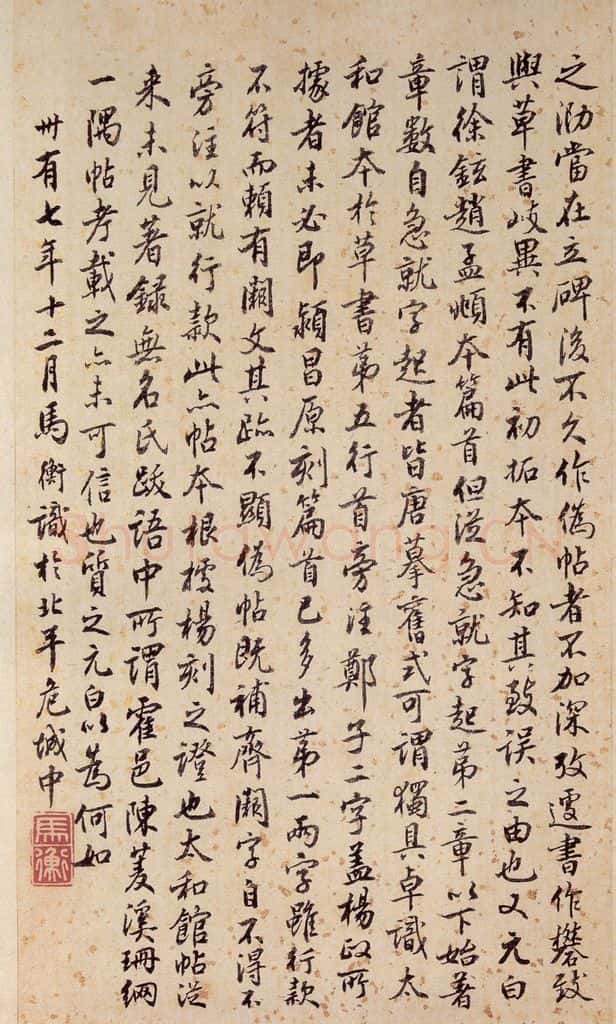 之泐當在立碑後不久作偽帖者不加深攷遽書作礬致
與草書歧異不有此初拓本不知其致誤之由也又元白
謂徐鉉趙孟頫本篇首但從急就字起第二章以下始著
章數自急就字起者皆唐摹舊式可謂獨具卓識太
和館本於草書第五行首旁注鄭子二字蓋楊政所
據者未必即潁昌原刻篇首已多出第一兩字雖行款
不符而賴有闕文其跡不顯偽帖既補齊闕字自不得不
旁注以就行款此亦帖本根據楊刻之證也太和館帖從
来未見著錄無名氏跋語中所謂霍邑陳菱溪珊網
一隅帖考載之亦未可信也質之元白以為何如
卅有七年十二月馬衡識於北平危城中
馬衡